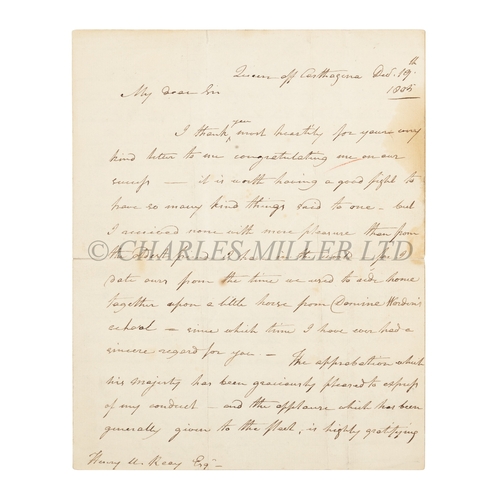 Queen off Carthagena Decr. 19th
1805
My dear Sir
I thank you most heartily for your very
kind letter to me congratulating me on our
success — it is worth having a good fight to
have so many kind things said to one — but
I received none with more pleasure than from
© CHARLES MILLER LTD
date ours from the time we used to ride home
together upon a little horse from Domine
school — since which time I have ever had a
sincere regard for you — The approbation which
his majesty has been graciously pleased to express
of my conduct — and the applause which has been
generally given to the fleet, is highly gratifying
Henry Esqr —